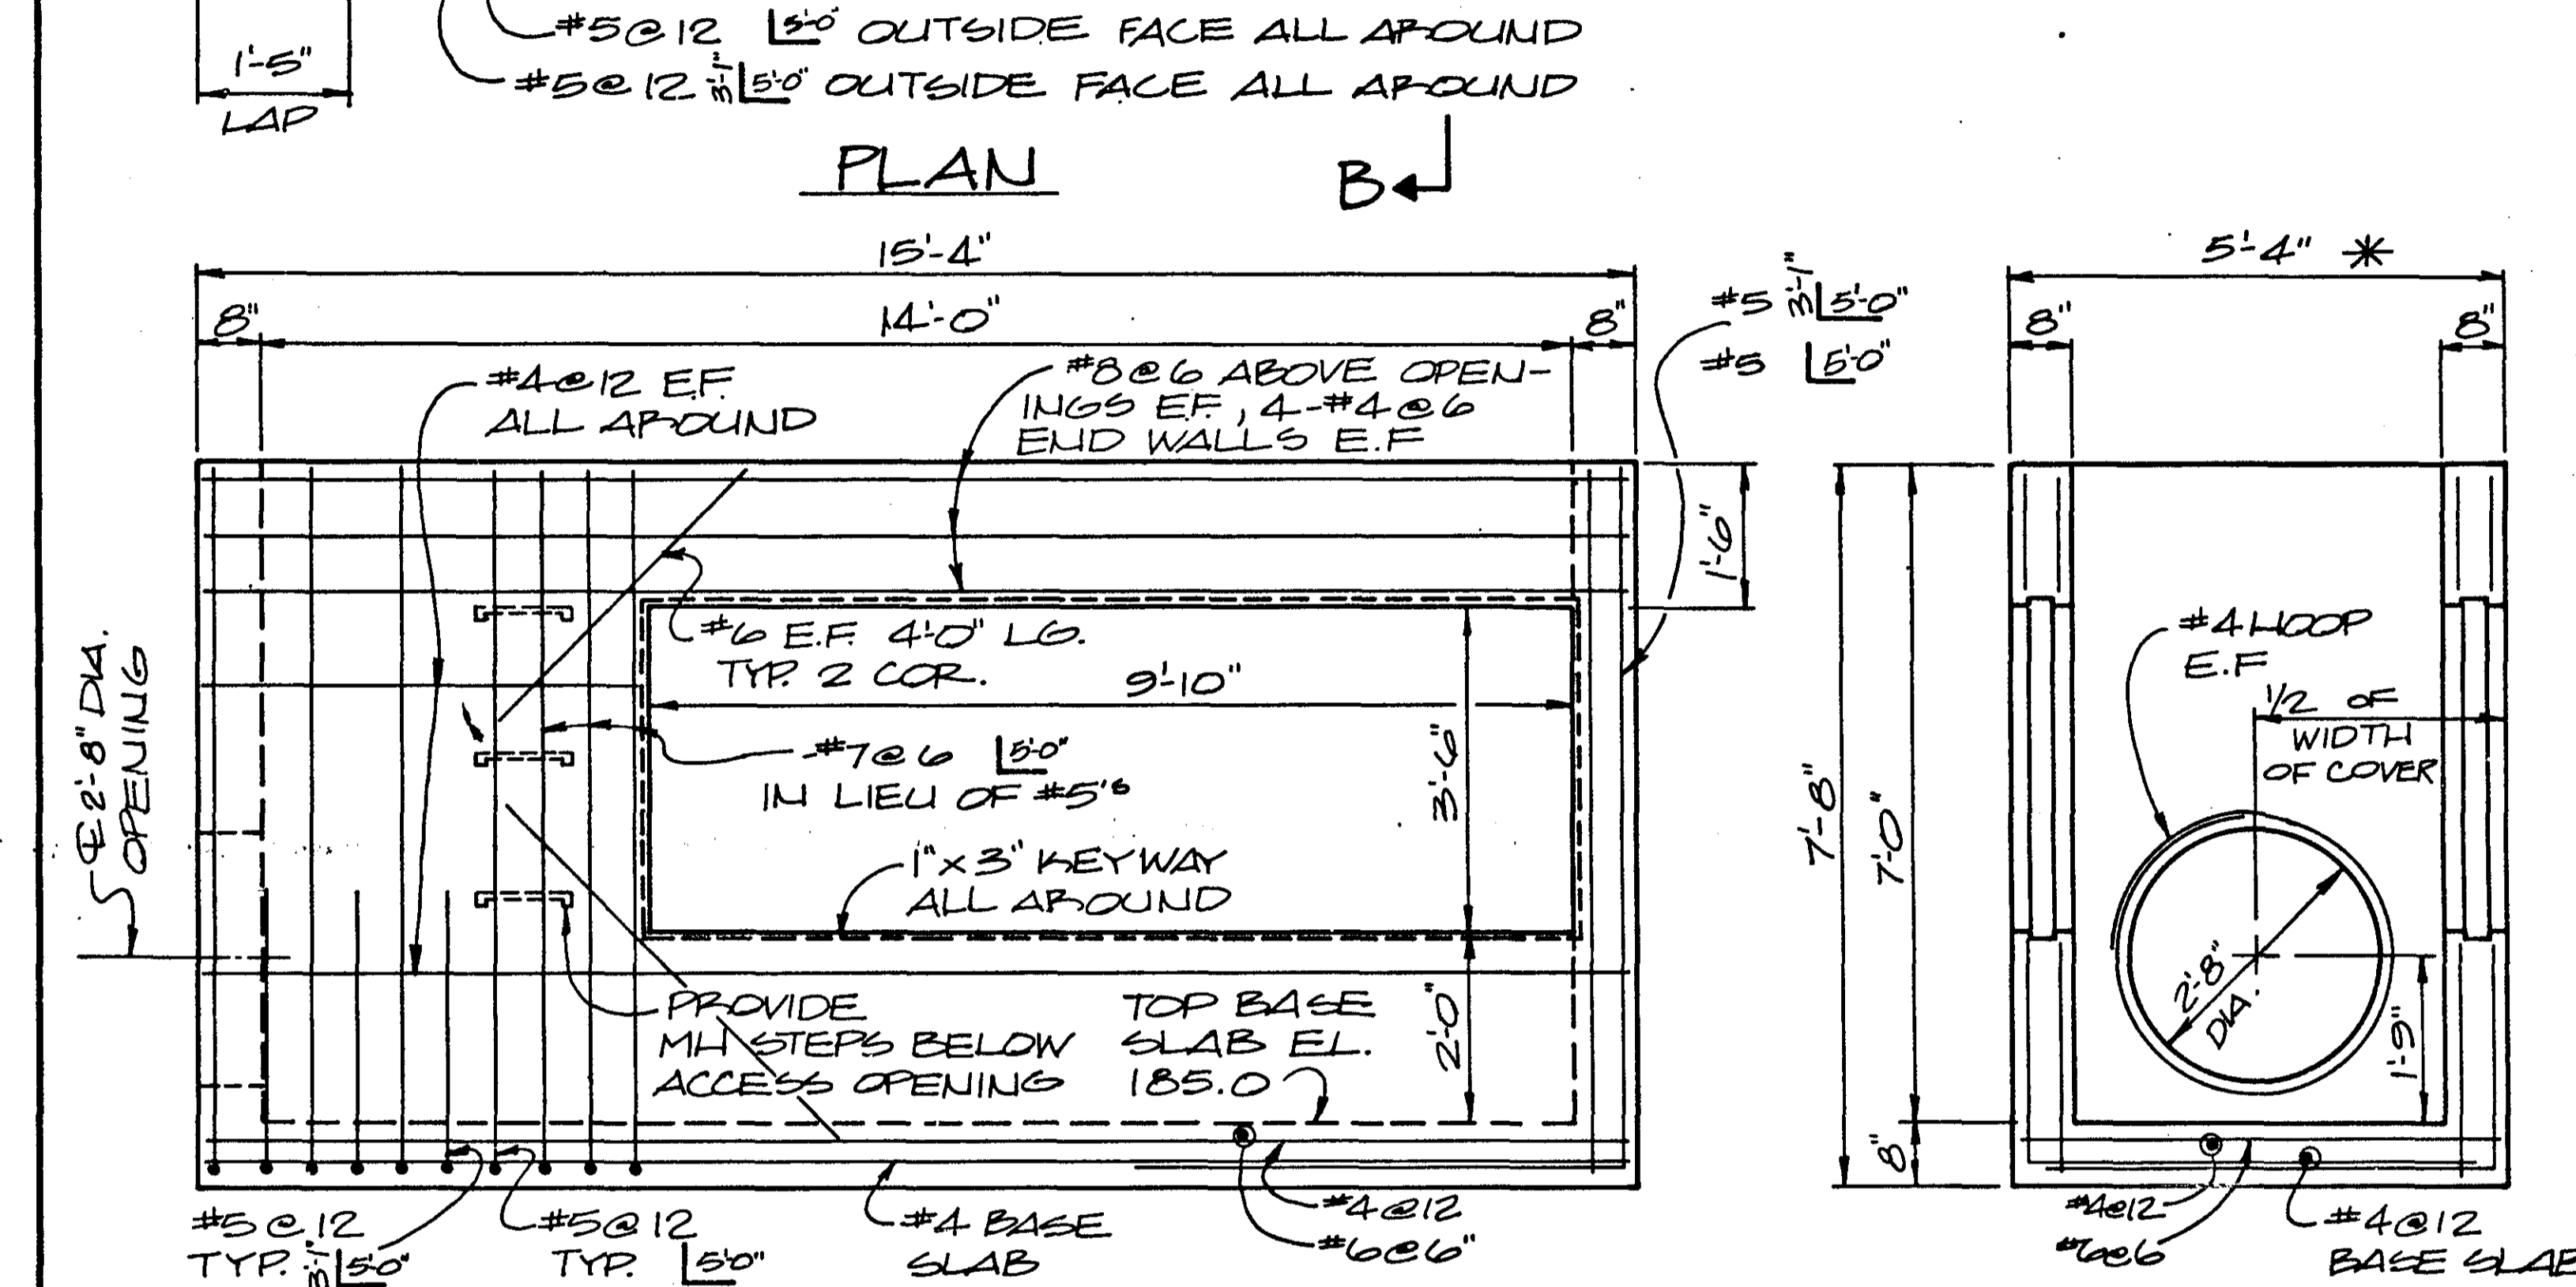 #5@12 5'-0" OUTSIDE FACE ALL AROUND
1'-5"
LAP
#5@12 3'-1" 5'-0" OUTSIDE FACE ALL AROUND
PLAN
B
15'-4"
8"
14'-0"
8"
#5 3'-1" 5'-0"
#5 5'-0"
#4@12 E.F.
ALL AROUND
#8@6 ABOVE OPEN-
INGS E.F., 4-#4@6
END WALLS E.F
1'-6"
#6 E.F. 4'-0" LG.
TYP. 2 COR.
9'-10"
3'-6"
℄ 2'-8" DIA.
OPENING
#7@6 5'-0"
IN LIEU OF #5's
1"x3" KEYWAY
ALL AROUND
PROVIDE
MH STEPS BELOW
ACCESS OPENING
TOP BASE
SLAB EL.
185.0
2'-0"
#5@12
TYP. 3'-1" 5'-0"
#5@12
TYP. 5'-0"
#4 BASE
SLAB
#4@12
#6@6"
5'-4" *
8"
8"
7'-8"
7'-0"
8"
#4 HOOP
E.F
1/2 OF
WIDTH
OF COVER
2'-8"
DIA.
1'-9"
#4@12
#6@6
#4@12
BASE SLAB